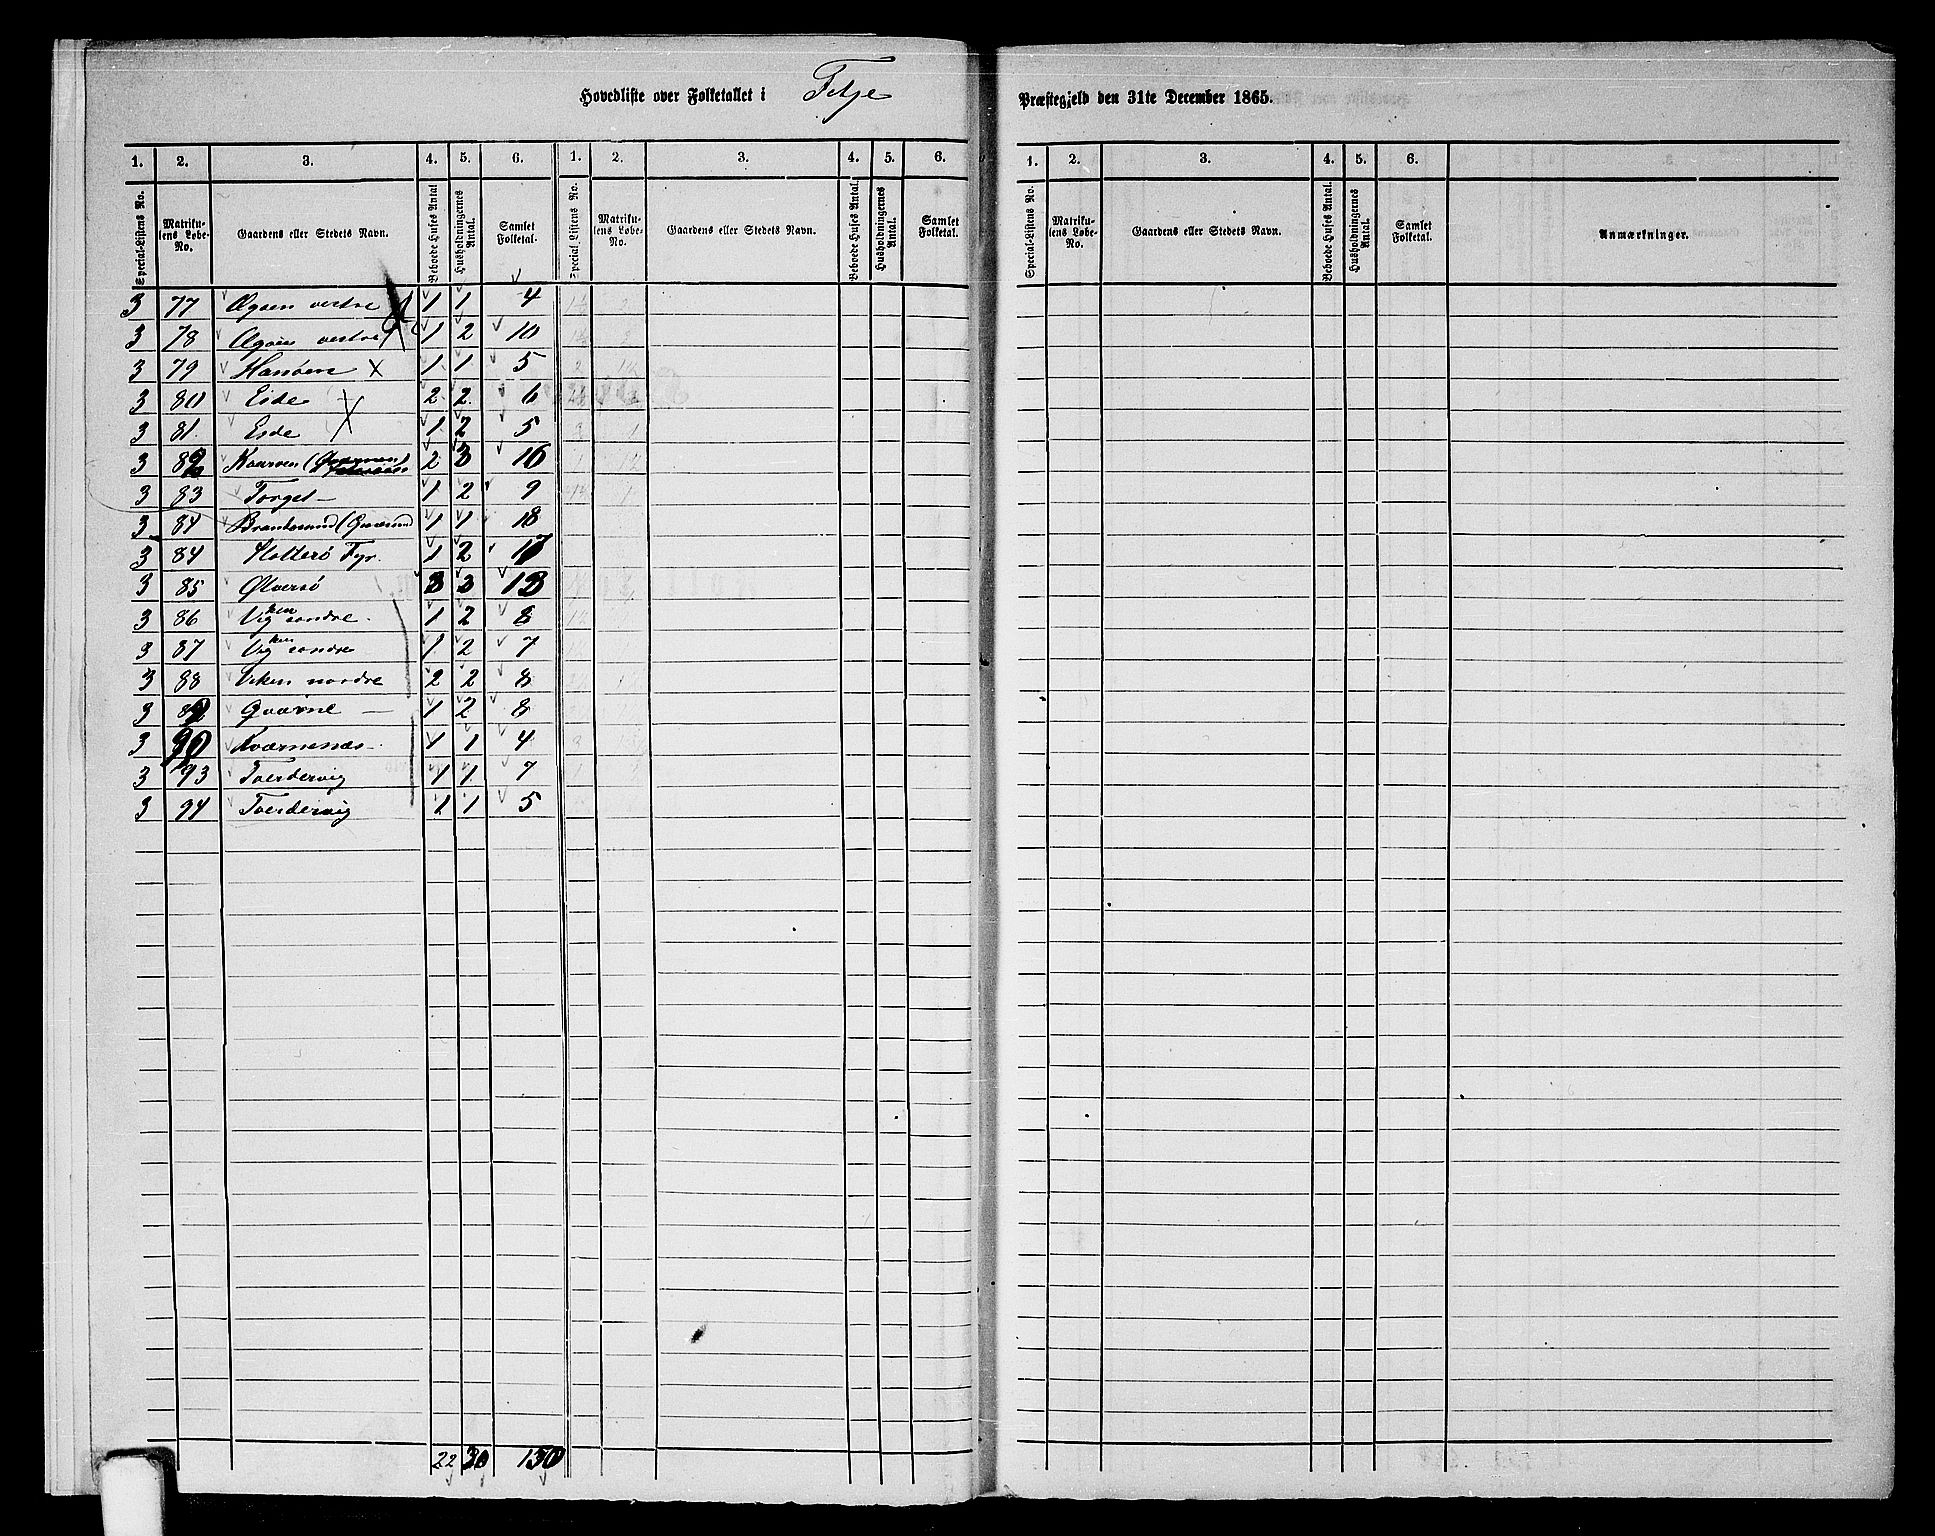 Hovedliste over Folketallet i Fitje Præstegjeld den 31te December 1865.
1. 2. 3. 4. 5. 6. 1. 2. 3. 4. 5. 6. 1. 2. 3. 4. 5. 6.
Special-Listens No. Matrikulens Løbe-No. Gaardens eller Stedets Navn. Beboede Huses Antal Husholdningernes Antal. Samlet Folketal. Special-Listens No. Matrikulens Løbe-No. Gaardens eller Stedets Navn. Beboede Huses Antal. Husholdningernes Antal. Samlet Folketal. Special-Listens No. Matrikulens Løbe-No. Gaardens eller Stedets Navn. Beboede Huses Antal. Husholdningernes Antal. Samlet Folketal. Anmærkninger.
3 77 Øgøen vestre 1 1 4
3 78 Øgøen vestre 1 2 10
3 79 Hanøen X 1 1 5
3 80 Eide 2 2 6
3 81. Eide X 1 2 5
3 82 2 3 16
3 83 Torget 1 2 9
3 84 Brandasund 1 1 18
3 84 Slotterø Fyr. 1 2 17
3 85 Ølversø 3 3 13
3 86 Vigken søndre. 1 2 8
3 87 Vigken søndre 1 2 7
3 88 Viken nordre 2 2 8
3 89 Qværne 1 2 8
3 90 Kværnenæs 1 1 4
3 93 Tverdervig 1 1 7
3 94 Tverdervig 1 1 5
22 30 150